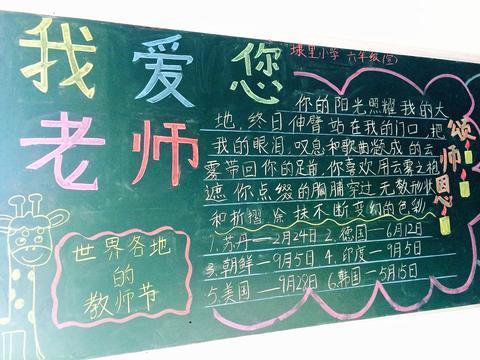 我爱您
老师
埭里小学 六年级(三)
颂师恩
你的阳光照耀我的大
地,终日伸臂站在我的门口,把
我的眼泪,叹息和歌曲变成的云
雾带回你的足前,你喜欢用云雾之袍
遮你点缀的胸脯穿过无数形状
和折摺 抹不断变幻的色彩
世界各地
的
教师节
1.苏丹—2月24日 2.德国—6月12日
3.朝鲜—9月5日 4.印度—9月5日
5.美国—9月28日 6.韩国—5月15日